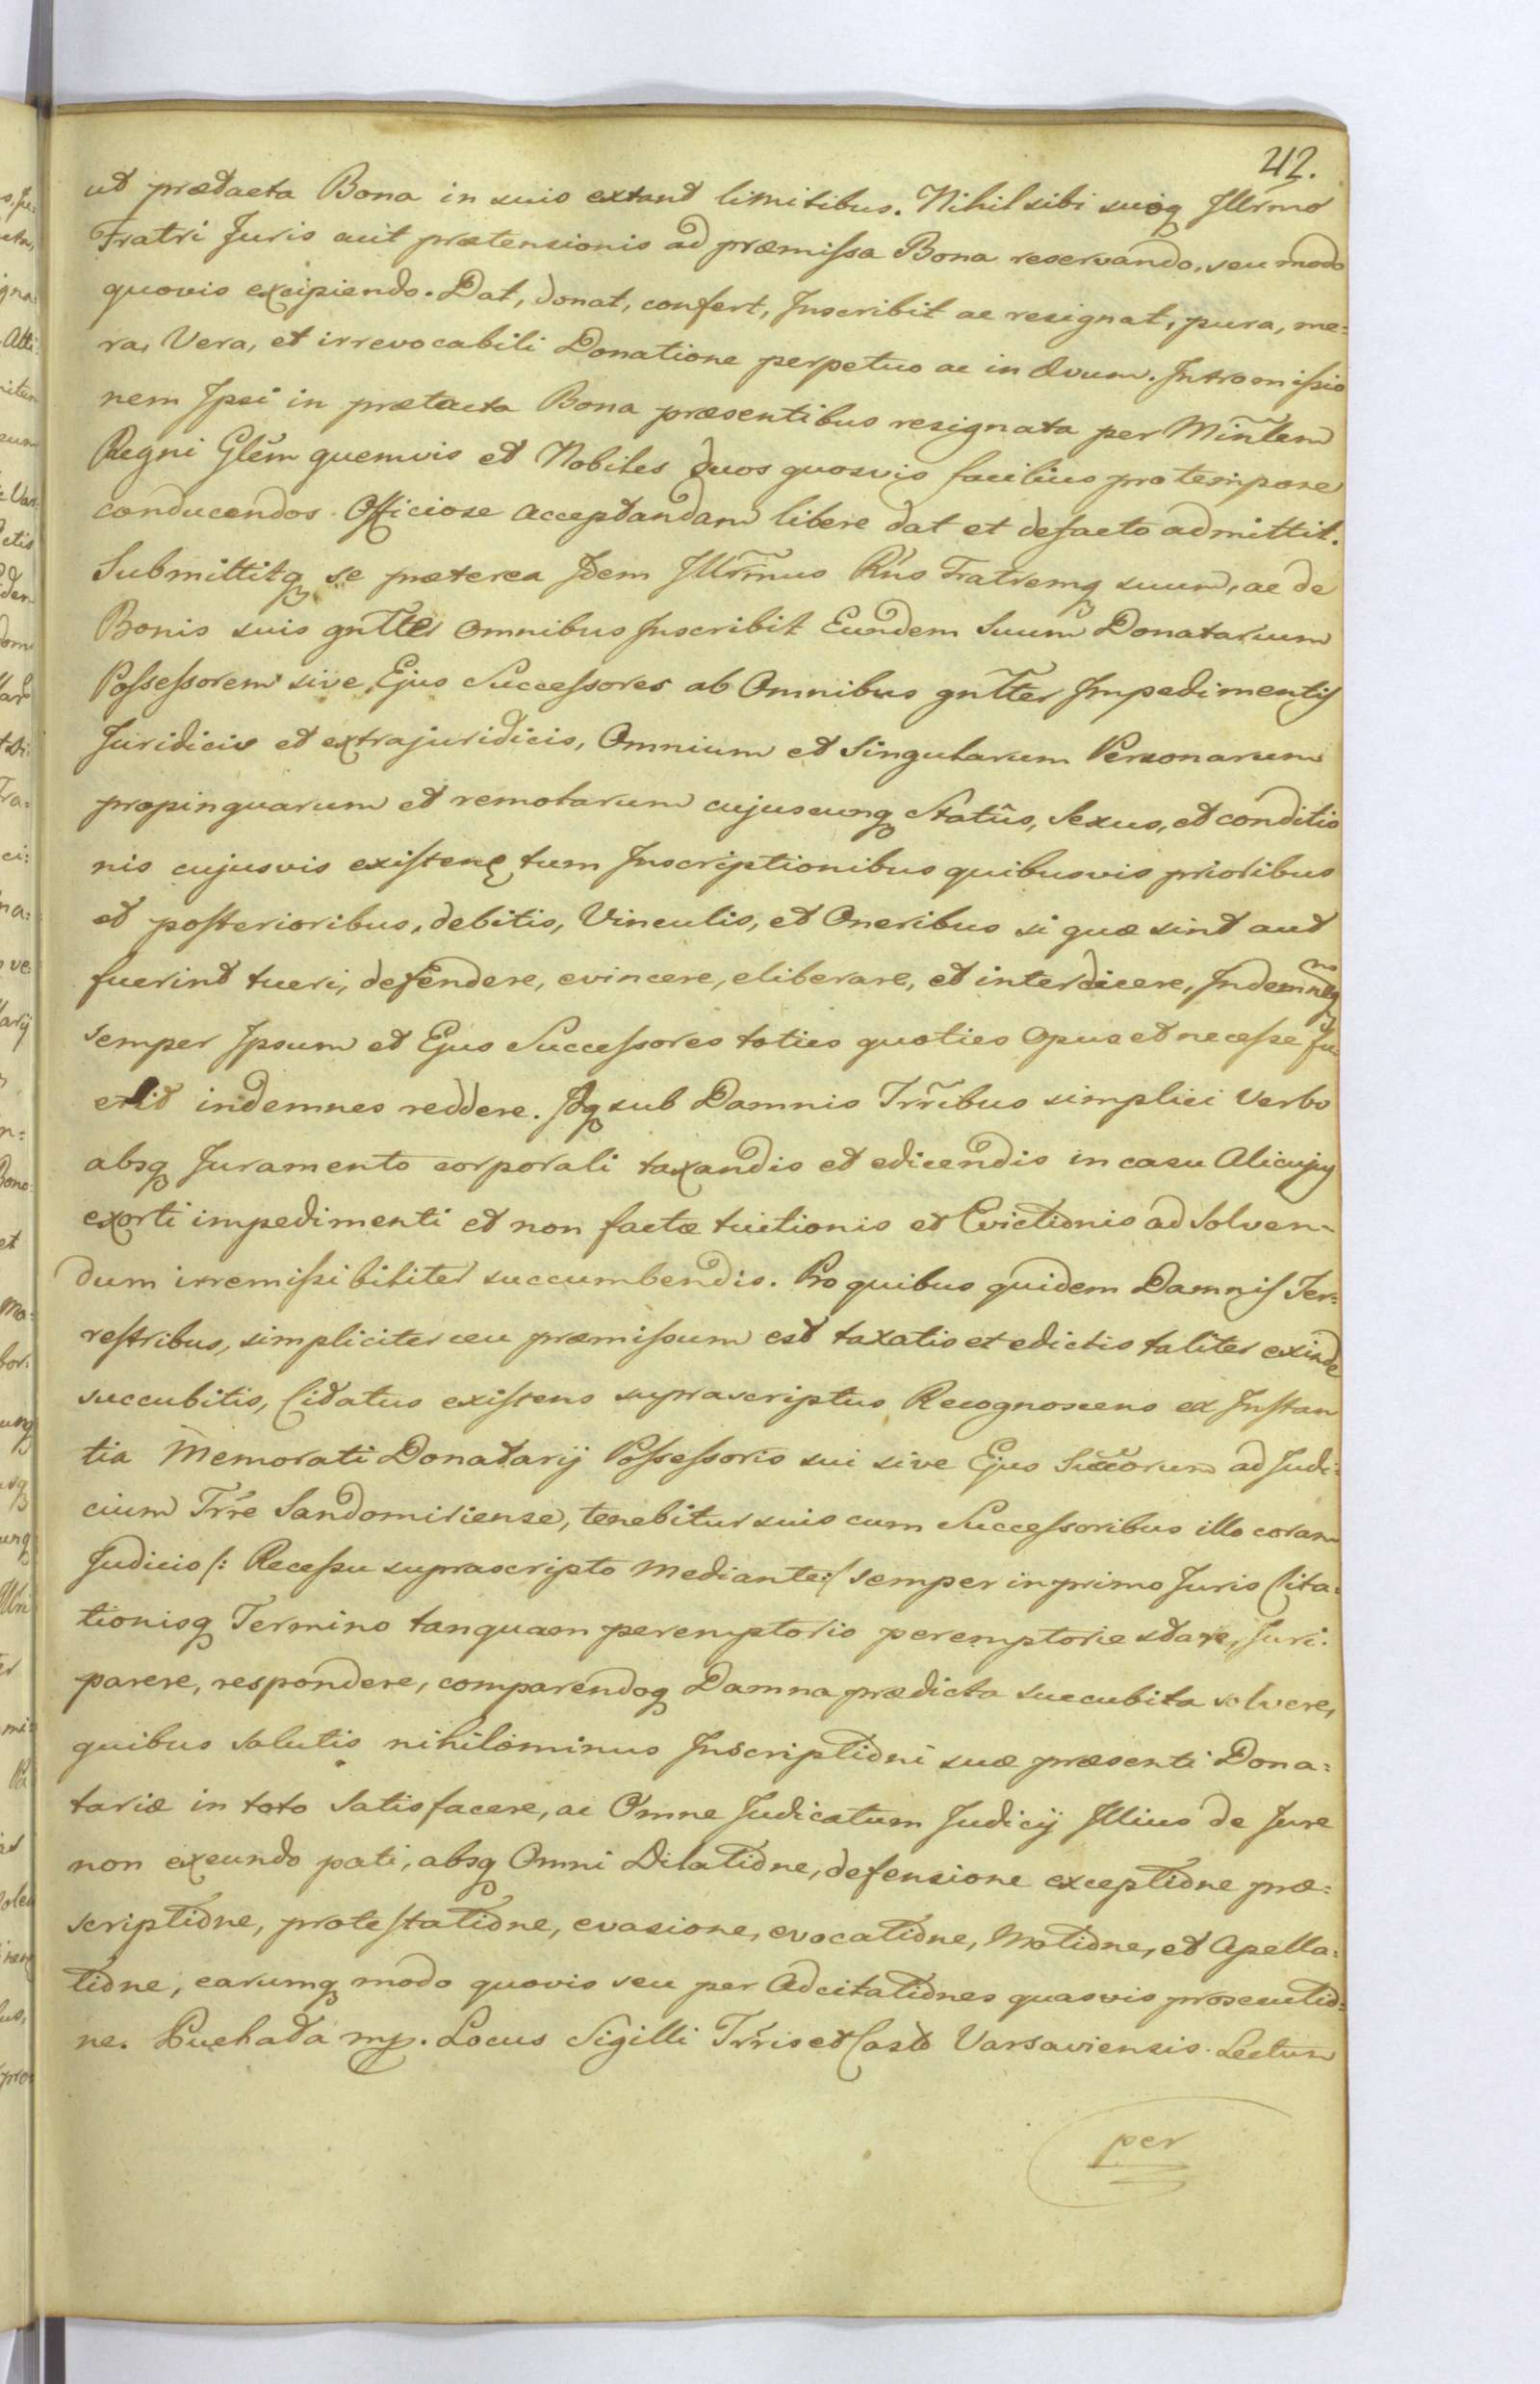 42.
ut prætacta Bona in suis extant limitibus. Nihil sibi suoq Illrmo
Fratri Juris aut prætensionis ad præmissa Bona reservando, seu modo
quovis excipiendo. Dat, donat, confert, Inscribit ac resignat, pura, me=
ra, Vera, et irrevocabili Donatione perpetuo ac in Ævum. Intromissio
nem Ipsi in prætacta Bona præsentibus resignata per Minlem
Regni Glem quemvis et Nobiles duos quosvis facilius pro tempore
conducendos Officiose acceptandam libere dat et defacto admittit.
Submittitq se præterea Idem Illrmus Rns Fratremq suum, ac de
Bonis suis gnlter omnibus Inscribit Eundem Suum Donatarium
Possessorem sive Ejus Successores ab Omnibus gnlter Impedimentis
Juridicis et extrajuridicis, Omnium et Singularum Personarum
propinquarum et remotarum cujuscunq Statûs, Sexus, et conditio
nis cujusvis existen tum Inscriptionibus quibusvis prioribus
et posterioribus, debitis, Vinculis, et Oneribus si quæ sint aut
fuerint tueri, defendere, evincere, eliberare, et interdicere, Indemnesq
semper Ipsum et Ejus Successores toties quoties opus et necesse fu
erit indemnes reddere. Idq sub Damnis Trribus simplici Verbo
absq Juramento corporali taxandis et edicendis in casu Alicujus
exorti impedimenti et non factæ tuitionis et Evictionis ad Solven-
dum irremissibiliter succumbendis. Pro quibus quidem Damnis Ter=
restribus, simpliciter ceu præmissum est taxatis et edictis taliter exinde
succubitis, Citatus existens suprascriptus Recognoscens ex Instan
tia Memorati Donatarij Possessoris sui sive Ejus Succorum ad Judi=
cium Trre Sandomiriense, tenebitur suis cum Successoribus illo coram
Judicio /: Recessu suprascripto mediante :/ semper in primo Juris Cita=
tionisq Termino tanquam peremptorio peremptorie stare, Juri
parere, respondere, comparendoq Damna prædicta succubita solvere,
quibus solutis nihilominus Inscriptioni suæ præsenti Dona=
tariæ in toto Satisfacere, ac Omne Judicatum Judicij Illius de Jure
non exeundo pati, absq Omni Dilatione, defensione exceptione præ=
scriptione, protestatione, evasione, evocatione, Motione, et Apella=
tione, earumq modo quovis seu per Adcitationes quasvis prosecutio=
ne. Puchała mp. Locus Sigilli Trris et Castr Varsaviensis. Lectum
per